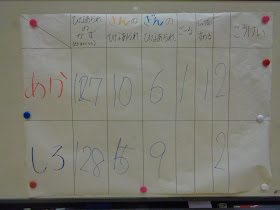 ひなあられのかず
きんのひなあられ
ぎんのひなあられ
ごうけい
あか 127 10 6 1 12
しろ 128 15 9 2